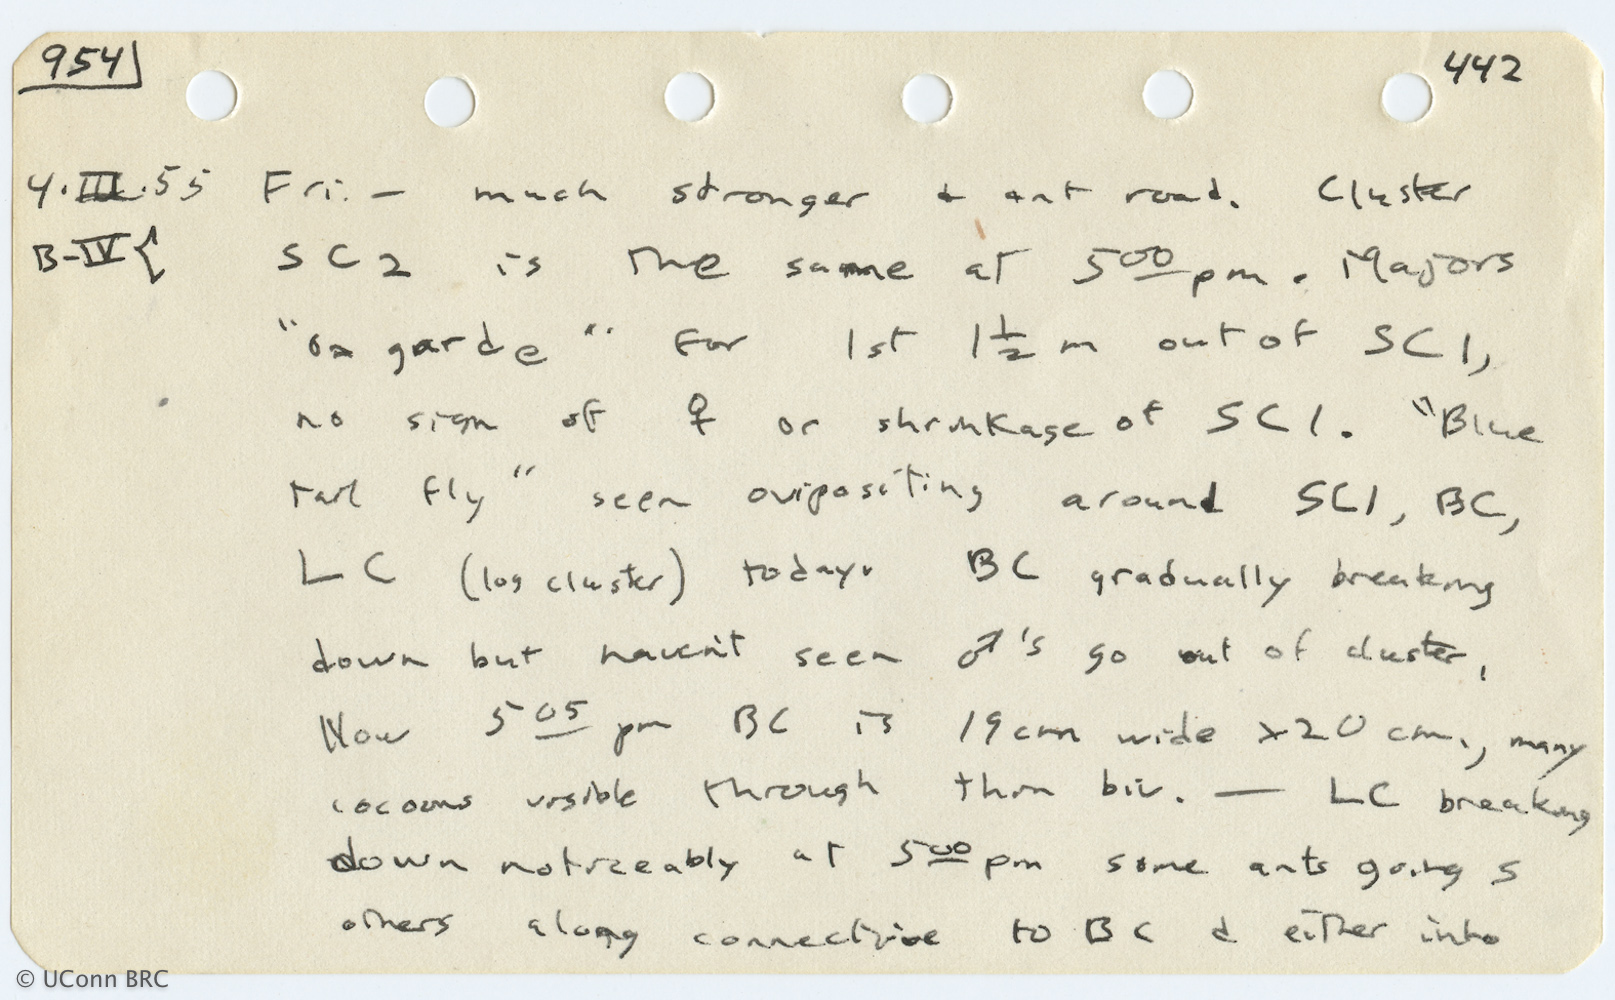 954 442
4.III.55 Fri. — much stronger & ant road. Cluster
B-IV{ SC2 is the same at 500 pm. Majors
"on garde" for 1st 1½ m out of SC1,
no sign of ♀ or shrinkage of SC1. "Blue
tail fly" seen ovipositing around SC1, BC,
LC (log cluster) today. BC gradually breaking
down but haven't seen ♂'s go out of cluster.
Now 505 pm BC is 19cm wide x20 cm., many
cocoons visible through thin biv. — LC breaking
down noticeably at 500 pm some ants going S
others along connective to BC & either into
© UConn BRC